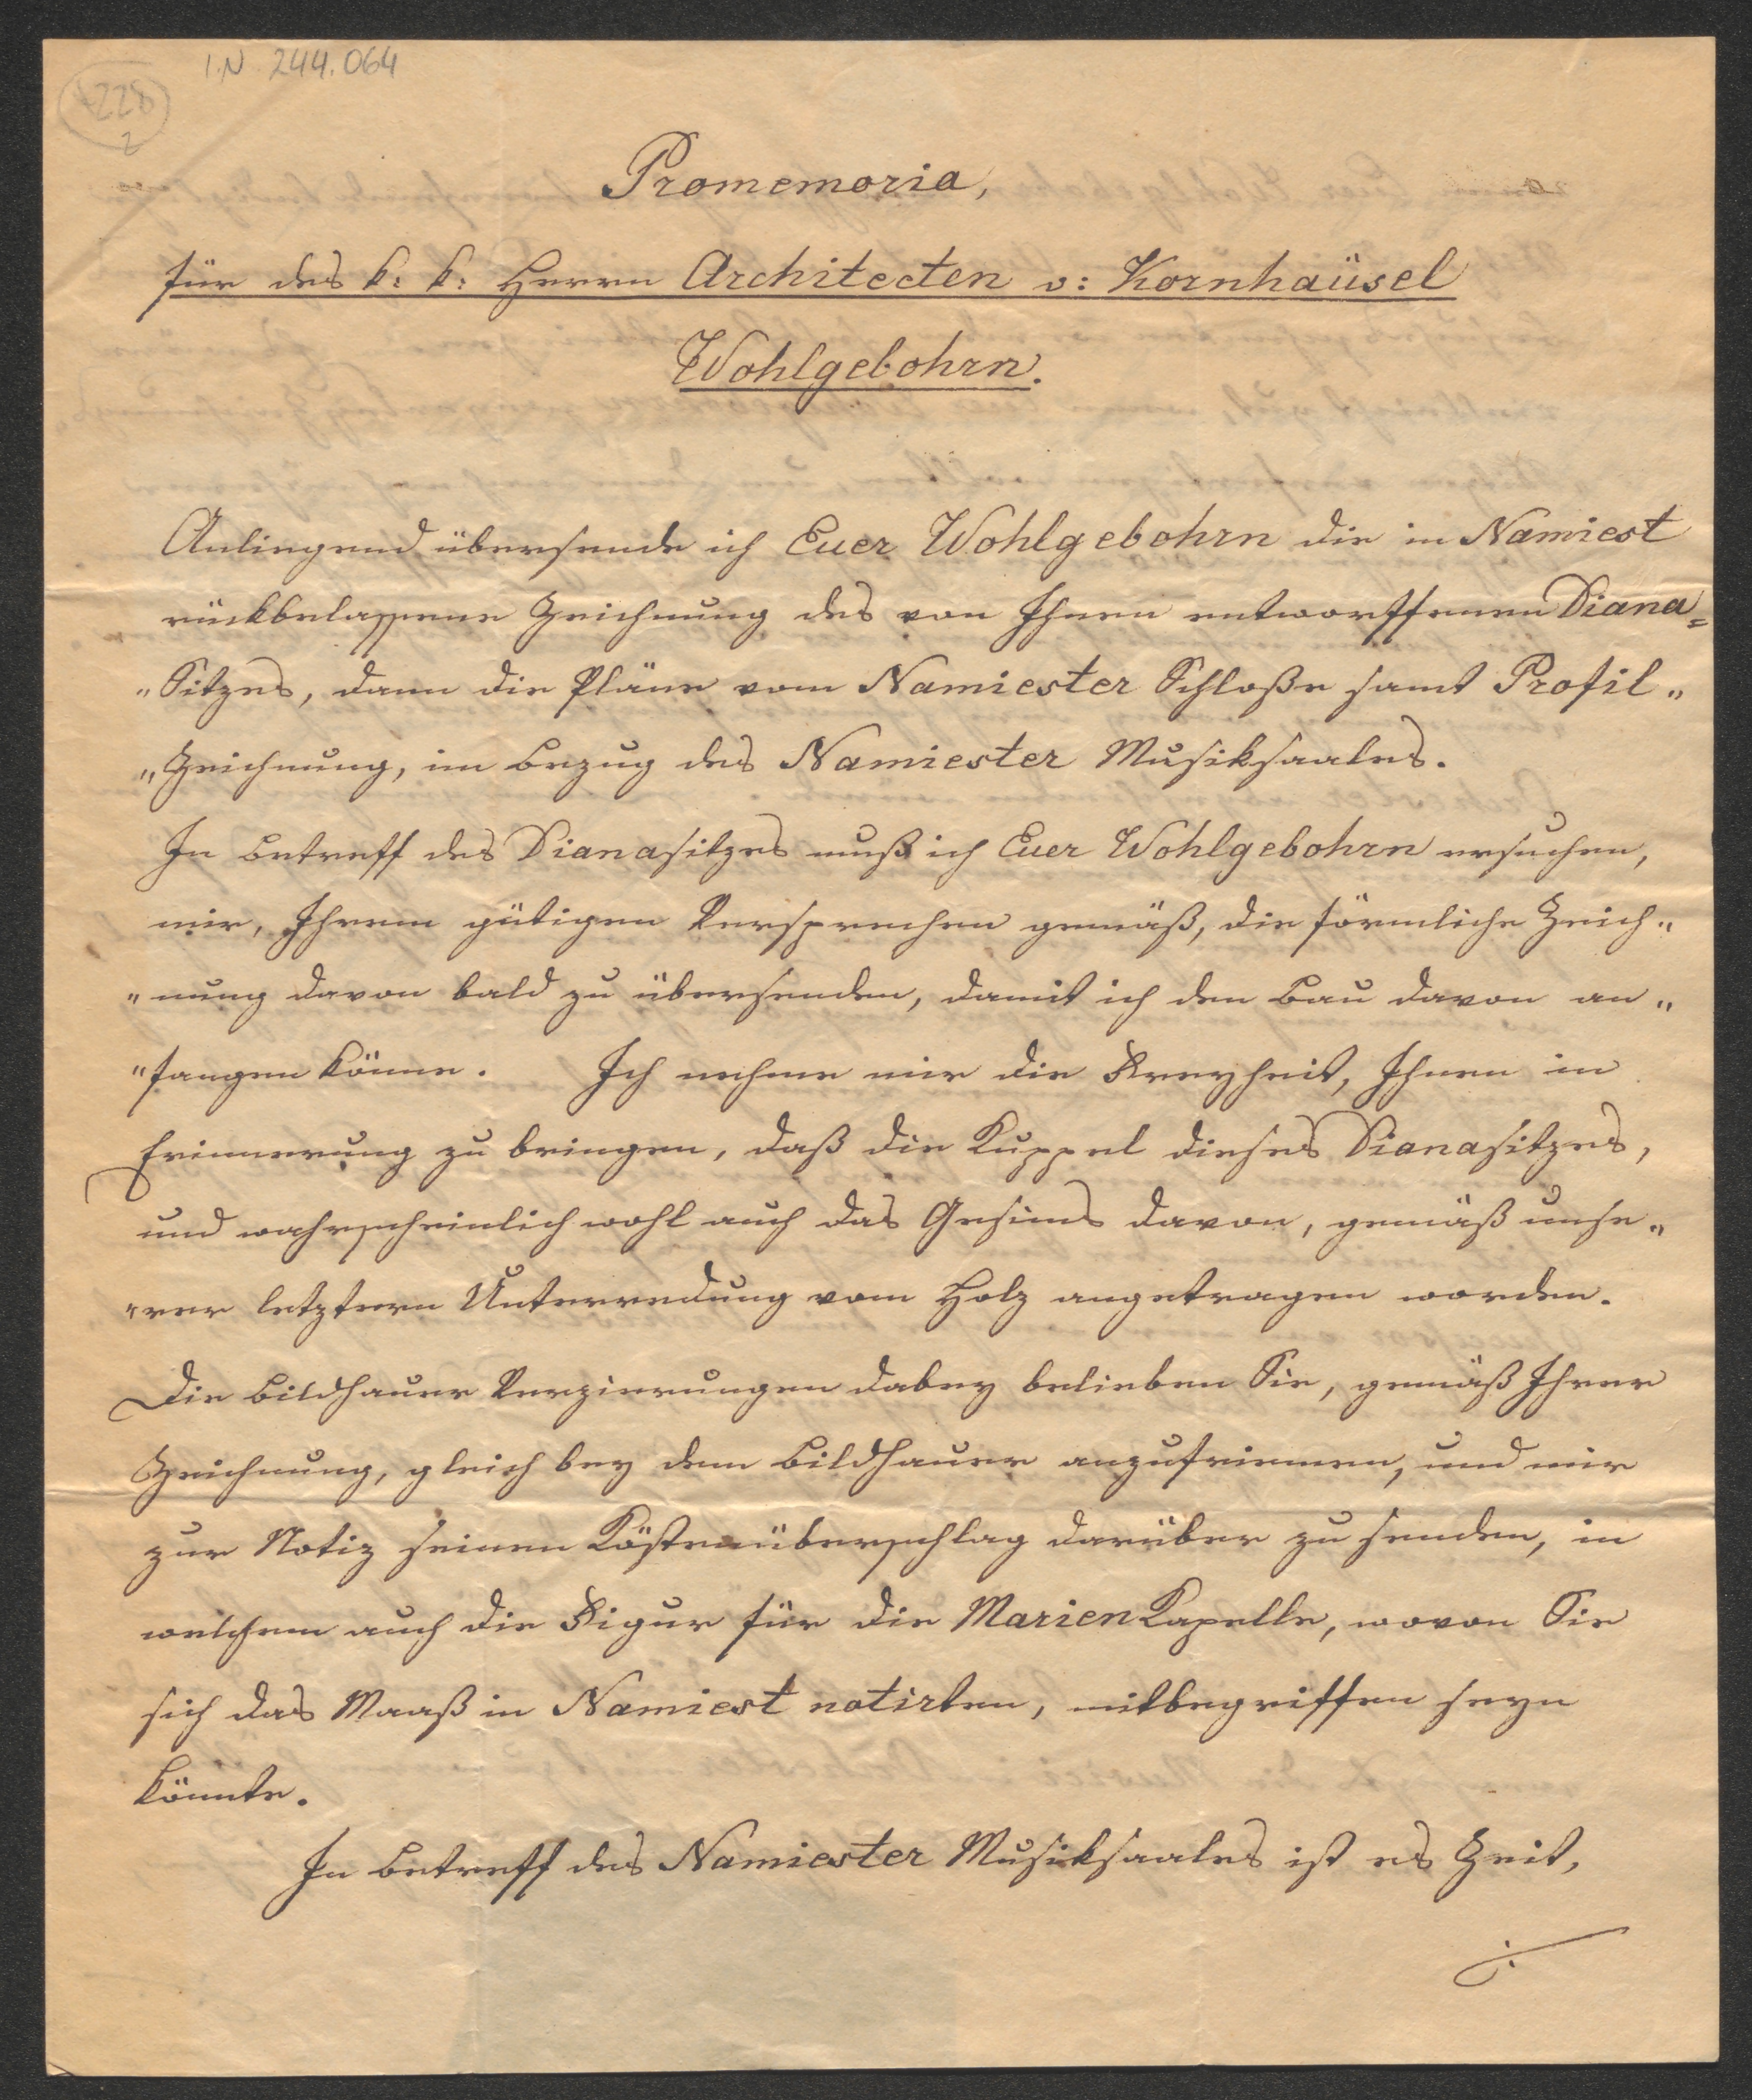 I.N. 244.064
Promemoria,
für des k: k: Herrn Architecten v: Kornhaüsel
Wohlgebohrn.
Anliegend übersende ich Euer Wohlgebohrn die in Namiest
rückbelassene Zeichnung des von Ihnen entworffenen Diana=
"Sitzes, dann die Pläne vom Namiester Schloße samt Profil"
"Zeichnung, im Bezug des Namiester Musiksaales.
In Betreff des Dianasitzes muß ich Euer Wohlgebohrn ersuchen,
mir, Ihrem gütigen Versprechen gemäß, die förmliche Zeich"
"nung davon bald zu übersenden, damit ich den Bau davon an"
"fangen könne. Ich nehme mir die Freyheit, Ihnen in
Erinnerung zu bringen, daß die Kuppel dieses Dianasitzes,
und wahrscheinlich wohl auch das Gesims davon, gemäß unse"
"rer letztern Unterredung vom Holz angetragen worden.
Die Bildhauer Verzierungen dabey belieben Sie, gemäß Ihrer
Zeichnung, gleich bey dem Bildhauer anzufriemen, und mir
zur Notiz seinen Köstenüberschlag darüber zu senden, in
welchem auch die Figur für die Marien Kapelle, wovon Sie
sich das Maaß in Namiest notirten, mitbegriffen seyn
könnte.
In Betreff des Namiester Musiksaales ist es Zeit,